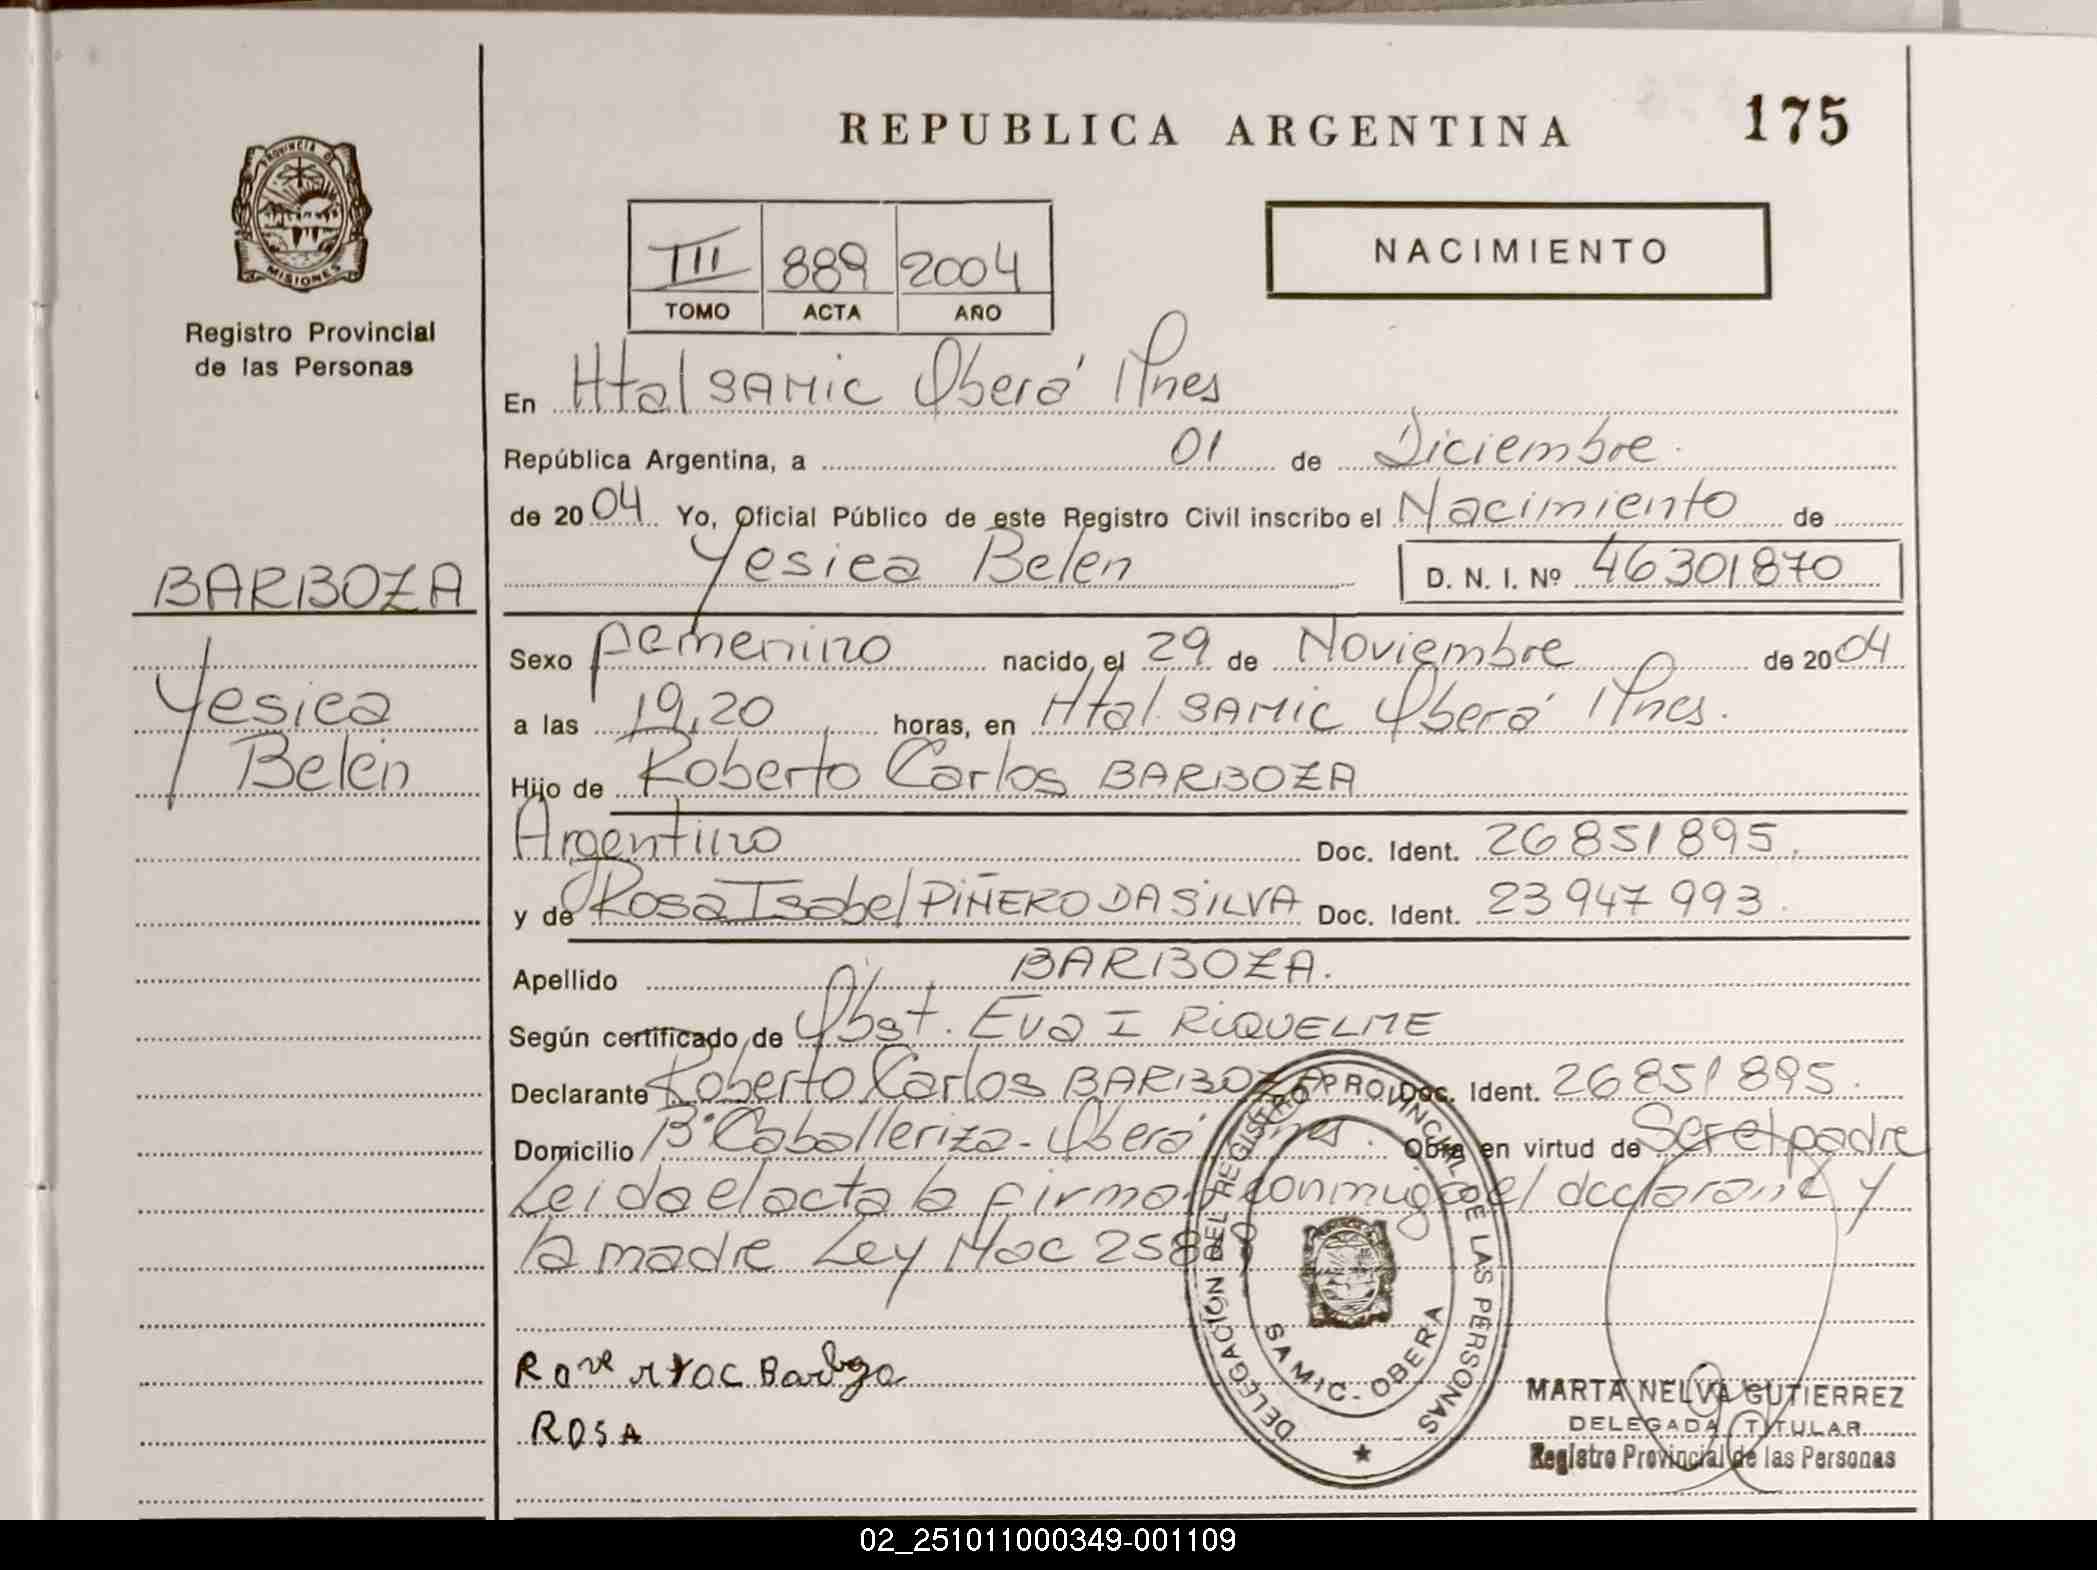 REPUBLICA ARGENTINA 175
PROVINCIA DE
MISIONES
Registro Provincial
de las Personas
III 889 2004
TOMO ACTA AÑO
NACIMIENTO
En Htal SAMIC Oberá Mnes
República Argentina, a 01 de Diciembre.
de 20 04 Yo, Oficial Público de este Registro Civil inscribo el Nacimiento de
Yesica Belén
D. N. I. Nº 46301870
BARBOZA
Yesica
Belén
Sexo Femenino nacido, el 29 de Noviembre de 20 04
a las 19,20 horas, en Htal. SAMIC Oberá Mnes.
Hijo de Roberto Carlos BARBOZA
Argentino Doc. Ident. 26851895.
y de Rosa Isabel PIÑERO DA SILVA Doc. Ident. 23947993.
Apellido BARBOZA.
Según certificado de Obst. Eva I RIQUELME
Declarante Roberto Carlos BARBOZA Doc. Ident. 26851895.
Domicilio Bº Caballeriza - Oberá Mnes. Obra en virtud de Ser el padre
Leida el acta la firman conmigo el declarante y
la madre Ley Nac 258
DELEGACIÓN DEL REGISTRO PROVINCIAL DE LAS PERSONAS
SAMIC - OBERA
Barboza
ROSA
MARTA NELVA GUTIERREZ
DELEGADA TITULAR
Registro Provincial de las Personas
02_251011000349-001109